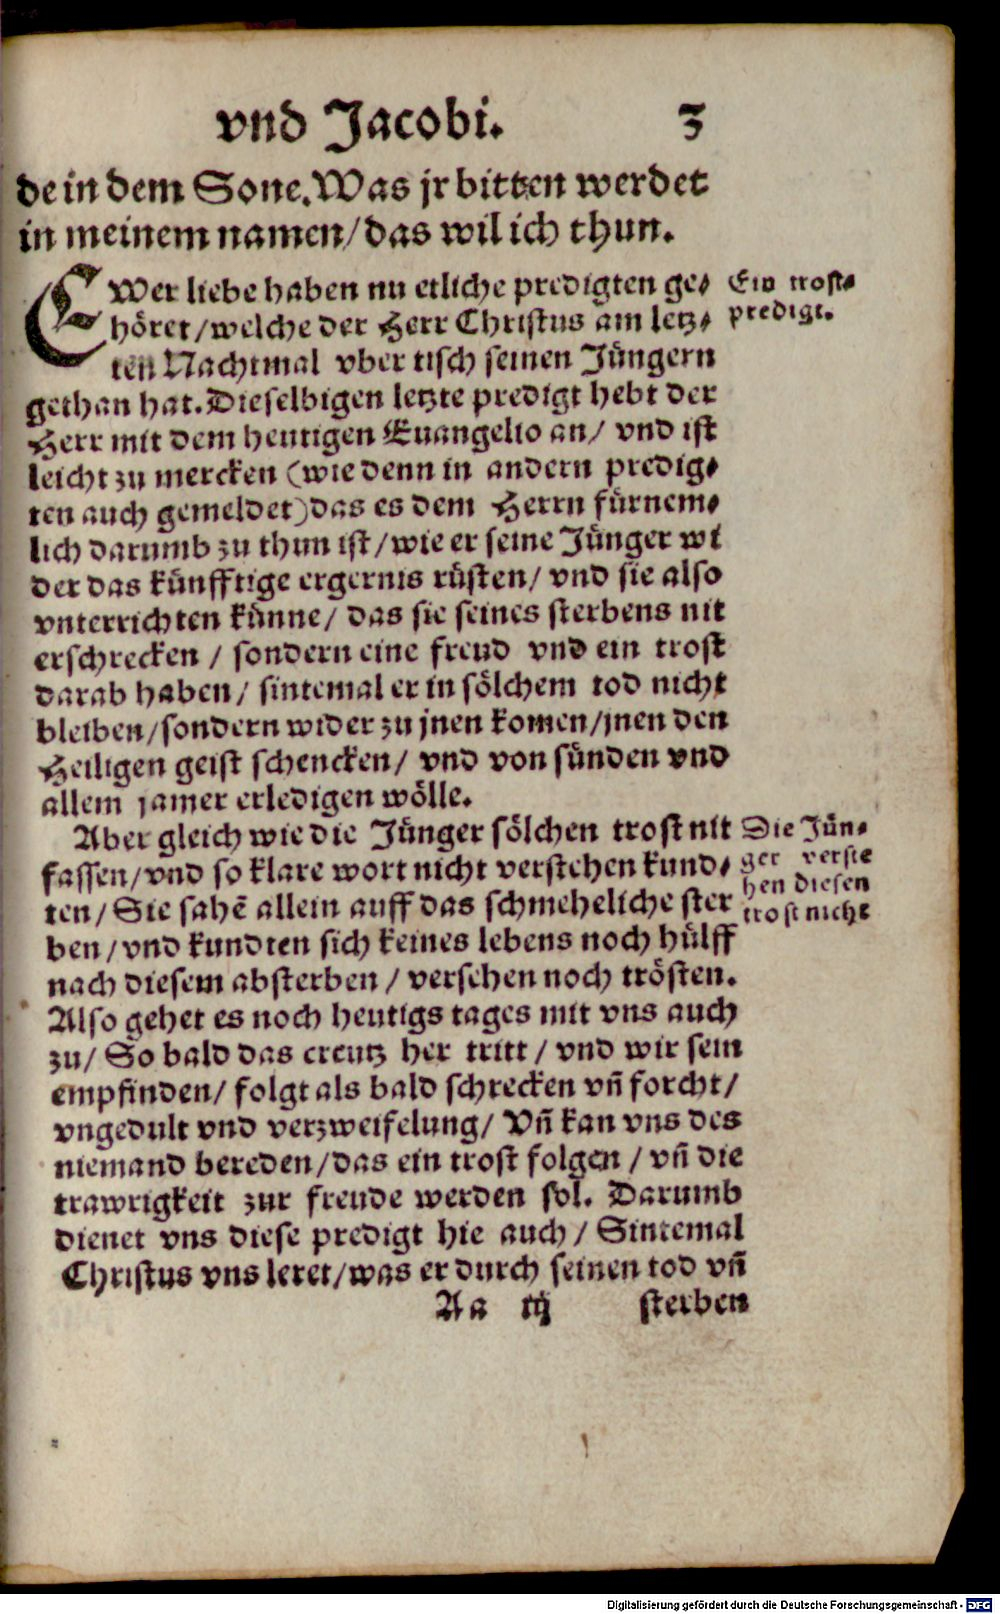 vnd Jacobi. 3
de in dem Sone. Was jr bitten werdet
in meinem namen/ das wil ich thun.
EWer liebe haben nu etliche predigten ge-
höret/ welche der Herr Christus am letz-
ten Nachtmal vber tisch seinen Jüngern
gethan hat. Dieselbigen letzte predigt hebt der
Herr mit dem heutigen Euangelio an/ vnd ist
leicht zu mercken (wie denn in andern predig-
ten auch gemeldet) das es dem Herrn fürnem-
lich darumb zu thun ist/ wie er seine Jünger wi
der das künfftige ergernis rüsten/ vnd sie also
vnterrichten künne/ das sie seines sterbens nit
erschrecken / sondern eine freud vnd ein trost
darab haben/ sintemal er in sölchem tod nicht
bleiben/ sondern wider zu jnen komen/ jnen den
Heiligen geist schencken/ vnd von sünden vnd
allem jamer erledigen wölle.
Ein trost-
predigt.
Aber gleich wie die Jünger sölchen trost nit
fassen/ vnd so klare wort nicht verstehen kund-
ten/ Sie sahē allein auff das schmeheliche ster
ben/ vnd kundten sich keines lebens noch hülff
nach diesem absterben / versehen noch trösten.
Also gehet es noch heutigs tages mit vns auch
zu/ So bald das creutz her tritt / vnd wir sein
empfinden/ folgt als bald schrecken vn̄ forcht/
vngedult vnd verzweifelung/ Vn̄ kan vns des
niemand bereden/ das ein trost folgen / vn̄ die
trawrigkeit zur freude werden sol. Darumb
dienet vns diese predigt hie auch/ Sintemal
Christus vns leret/ was er durch seinen tod vn̄
Die Jün-
ger verste
hen diesen
trost nicht
Aa iij sterben
Digitalisierung gefördert durch die Deutsche Forschungsgemeinschaft - DFG